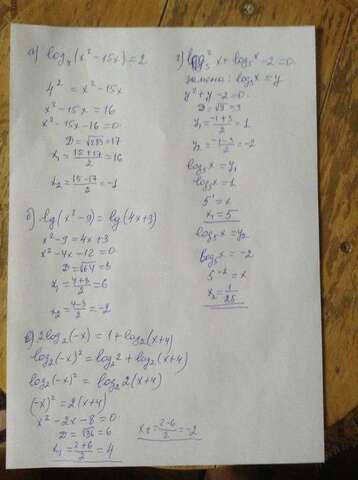 а) log₄(x²-15x)=2
4² = x²-15x
x²-15x=16
x²-15x-16=0
D=√289=17
x₁=(15+17)/2=16
x₂=(15-17)/2=-1
б) lg(x²-9)=lg(4x+3)
x²-9=4x+3
x²-4x-12=0
D=√64=8
x₁=(4+8)/2=6
x₂=(4-8)/2=-2
в) 2log₂(-x)=1+log₂(x+4)
log₂(-x)²=log₂2+log₂(x+4)
log₂(-x)²=log₂2(x+4)
(-x)²=2(x+4)
x²-2x-8=0
D=√36=6
x₁=(2+6)/2=4
x₂=(2-6)/2=-2
г) log₅²x+log₅x-2=0
замена: log₅x=y
y²+y-2=0
D=√9=3
y₁=(-1+3)/2=1
y₂=(-1-3)/2=-2
log₅x=y₁
log₅x=1
5¹=x
x₁=5
log₅x=y₂
log₅x=-2
5⁻²=x
x₂=1/25